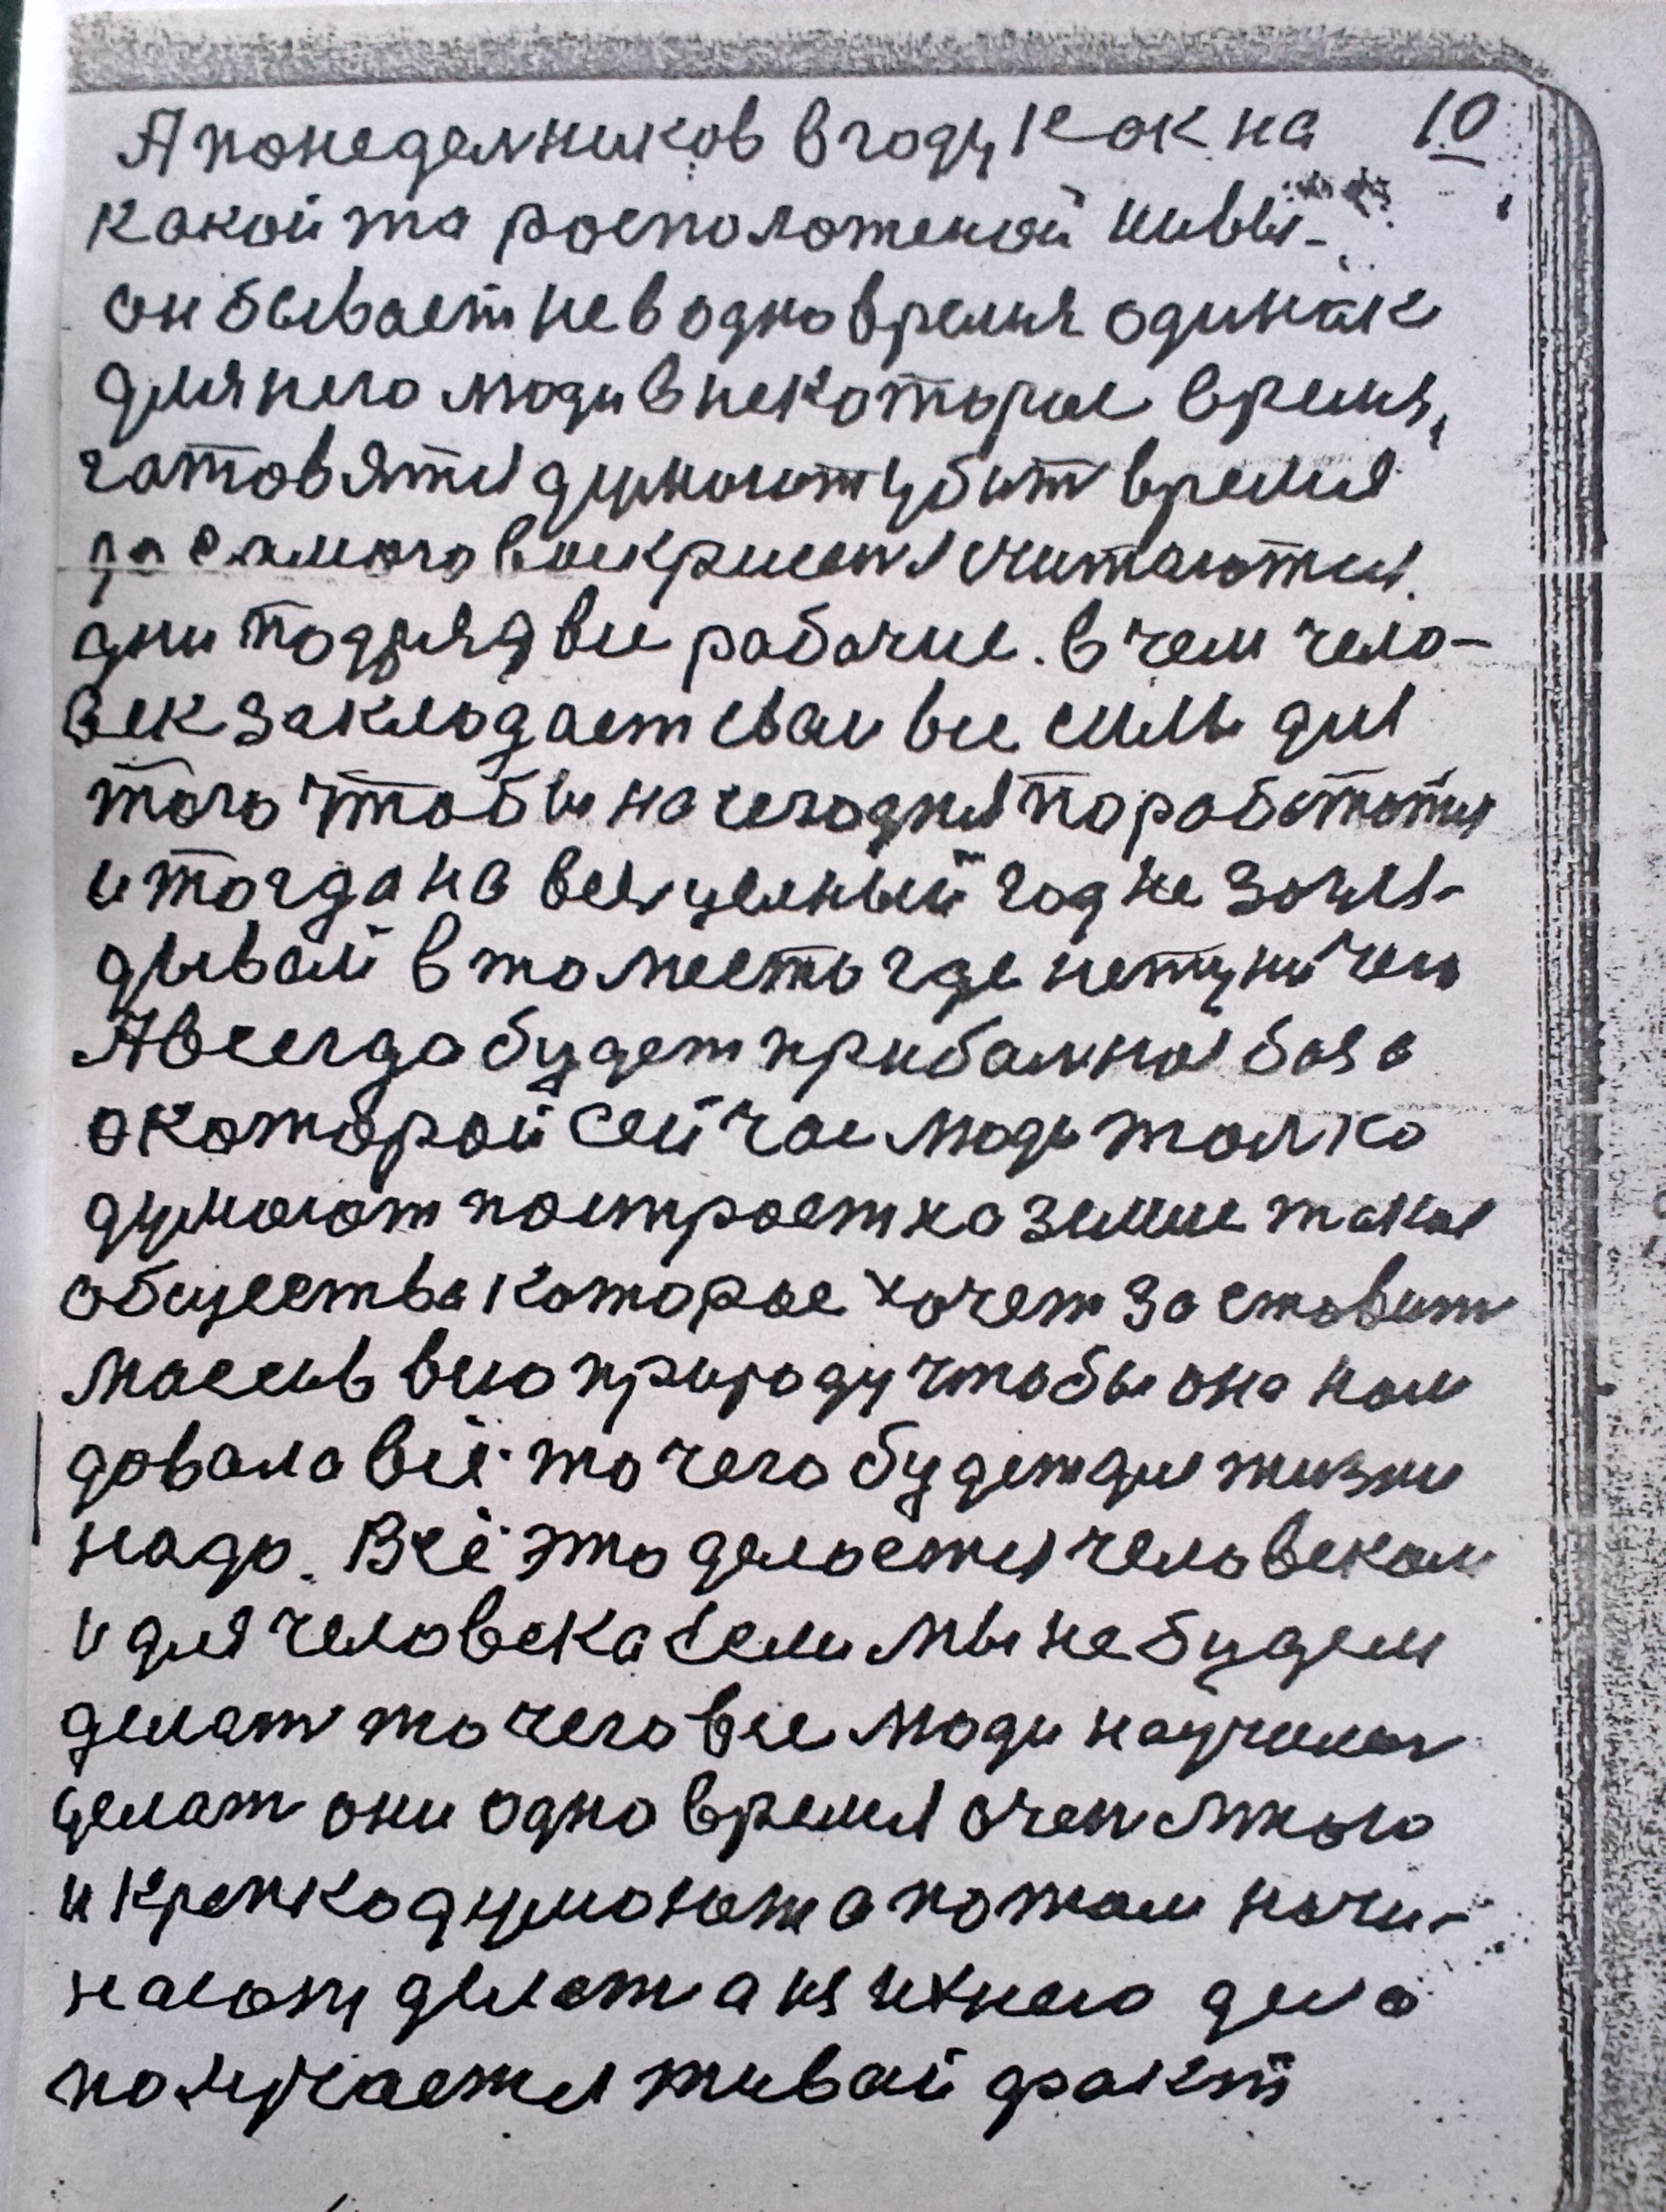 А понеделников в году как на 10
какой та росположеной нивы-
он бывает не в одно время одинак
для него люди в некоторые время,
готовятся думоют убит время
до самого воскрисеня считаются
дни подряд все рабочие. в чем чело-
век закладает сваи все силы для
того чтобы на сегодня поработотся
и тогда на весь целный год не загля-
дывай в то место где нету ничего
А всегда будет прибална база
о которой сейчас люды толко
думоют построет на земле такое
общества которое хочет заставит
массив всю природу чтобы она нам
довала всё то чего будет для жизни
надо. Всё это делоется человеком
и для человека Если мы не будем
делат то чего все люди научилис
делат они одно время очен много
и крепко думоют а потом начи-
нают делат а из ихнего дела
получается живой факт